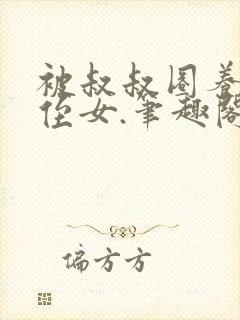 被叔叔圈养
侄女.笔趣阁
偏方方